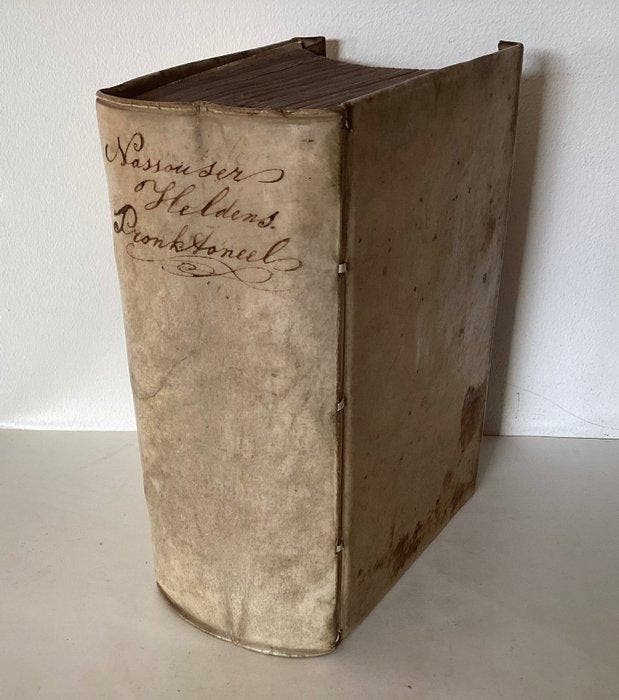 Nassouser
Heldens.
Pronktoneel